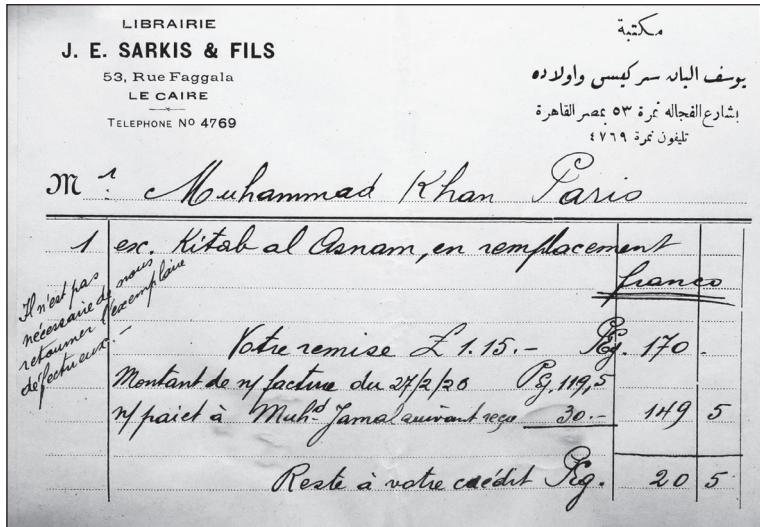 LIBRAIRIE
J. E. SARKIS & FILS
53, Rue Faggala
LE CAIRE
TELEPHONE No 4769
مكتبة
يوسف اليان سركيس واولاده
بشارع الفجاله نمرة ٥٣ بمصر القاهرة
تليفون نمرة ٤٧٦٩
Mr. Muhammad Khan Paris
1 ex. Kitab al Asnam, en remplacement
franco
Il n'est pas
nécessaire de nous
retourner l'exemplaire
défectueux.-
Votre remise £ 1.15.- PEg. 170 -
Montant de n/ facture du 27/2/26 Pg. 119,5
n/ paiet à Muhd Jamal suivant reçu 30.- 149 5
Reste à votre crédit PEg. 20 5